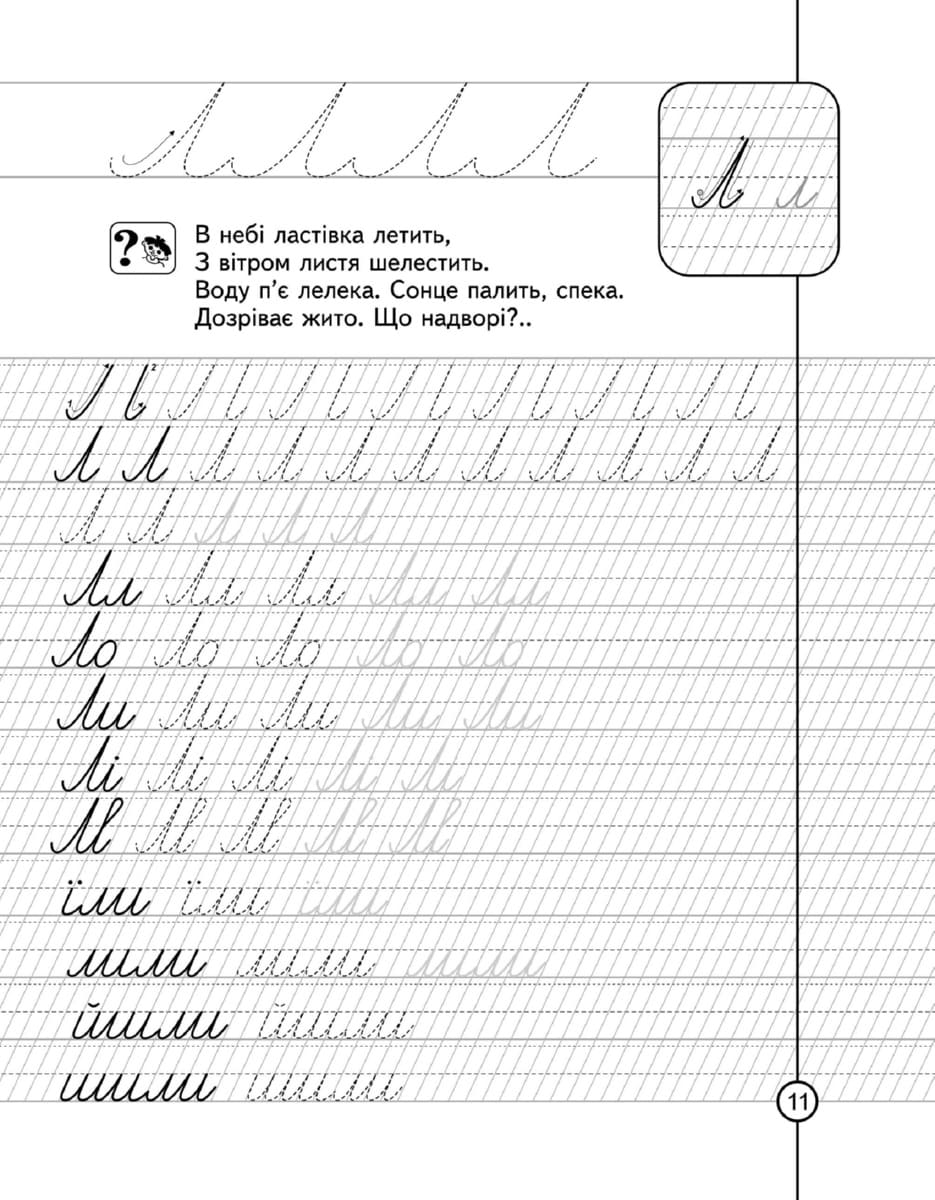 Л Л Л Л
Л л
?
В небі ластівка летить,
З вітром листя шелестить.
Воду п'є лелека. Сонце палить, спека.
Дозріває жито. Що надворі?..
2
Л Л Л Л Л Л Л Л Л Л Л
Л Л Л Л Л
Лл Лл Лл Лл Лл
Ло Ло Ло Ло Ло
Ли Ли Ли Ли Ли
Лі Лі Лі Лі Лі
Лв Лв Лв Лв Лв
їли їли їли
мили мили мили
йшли йшли
шили шили
11